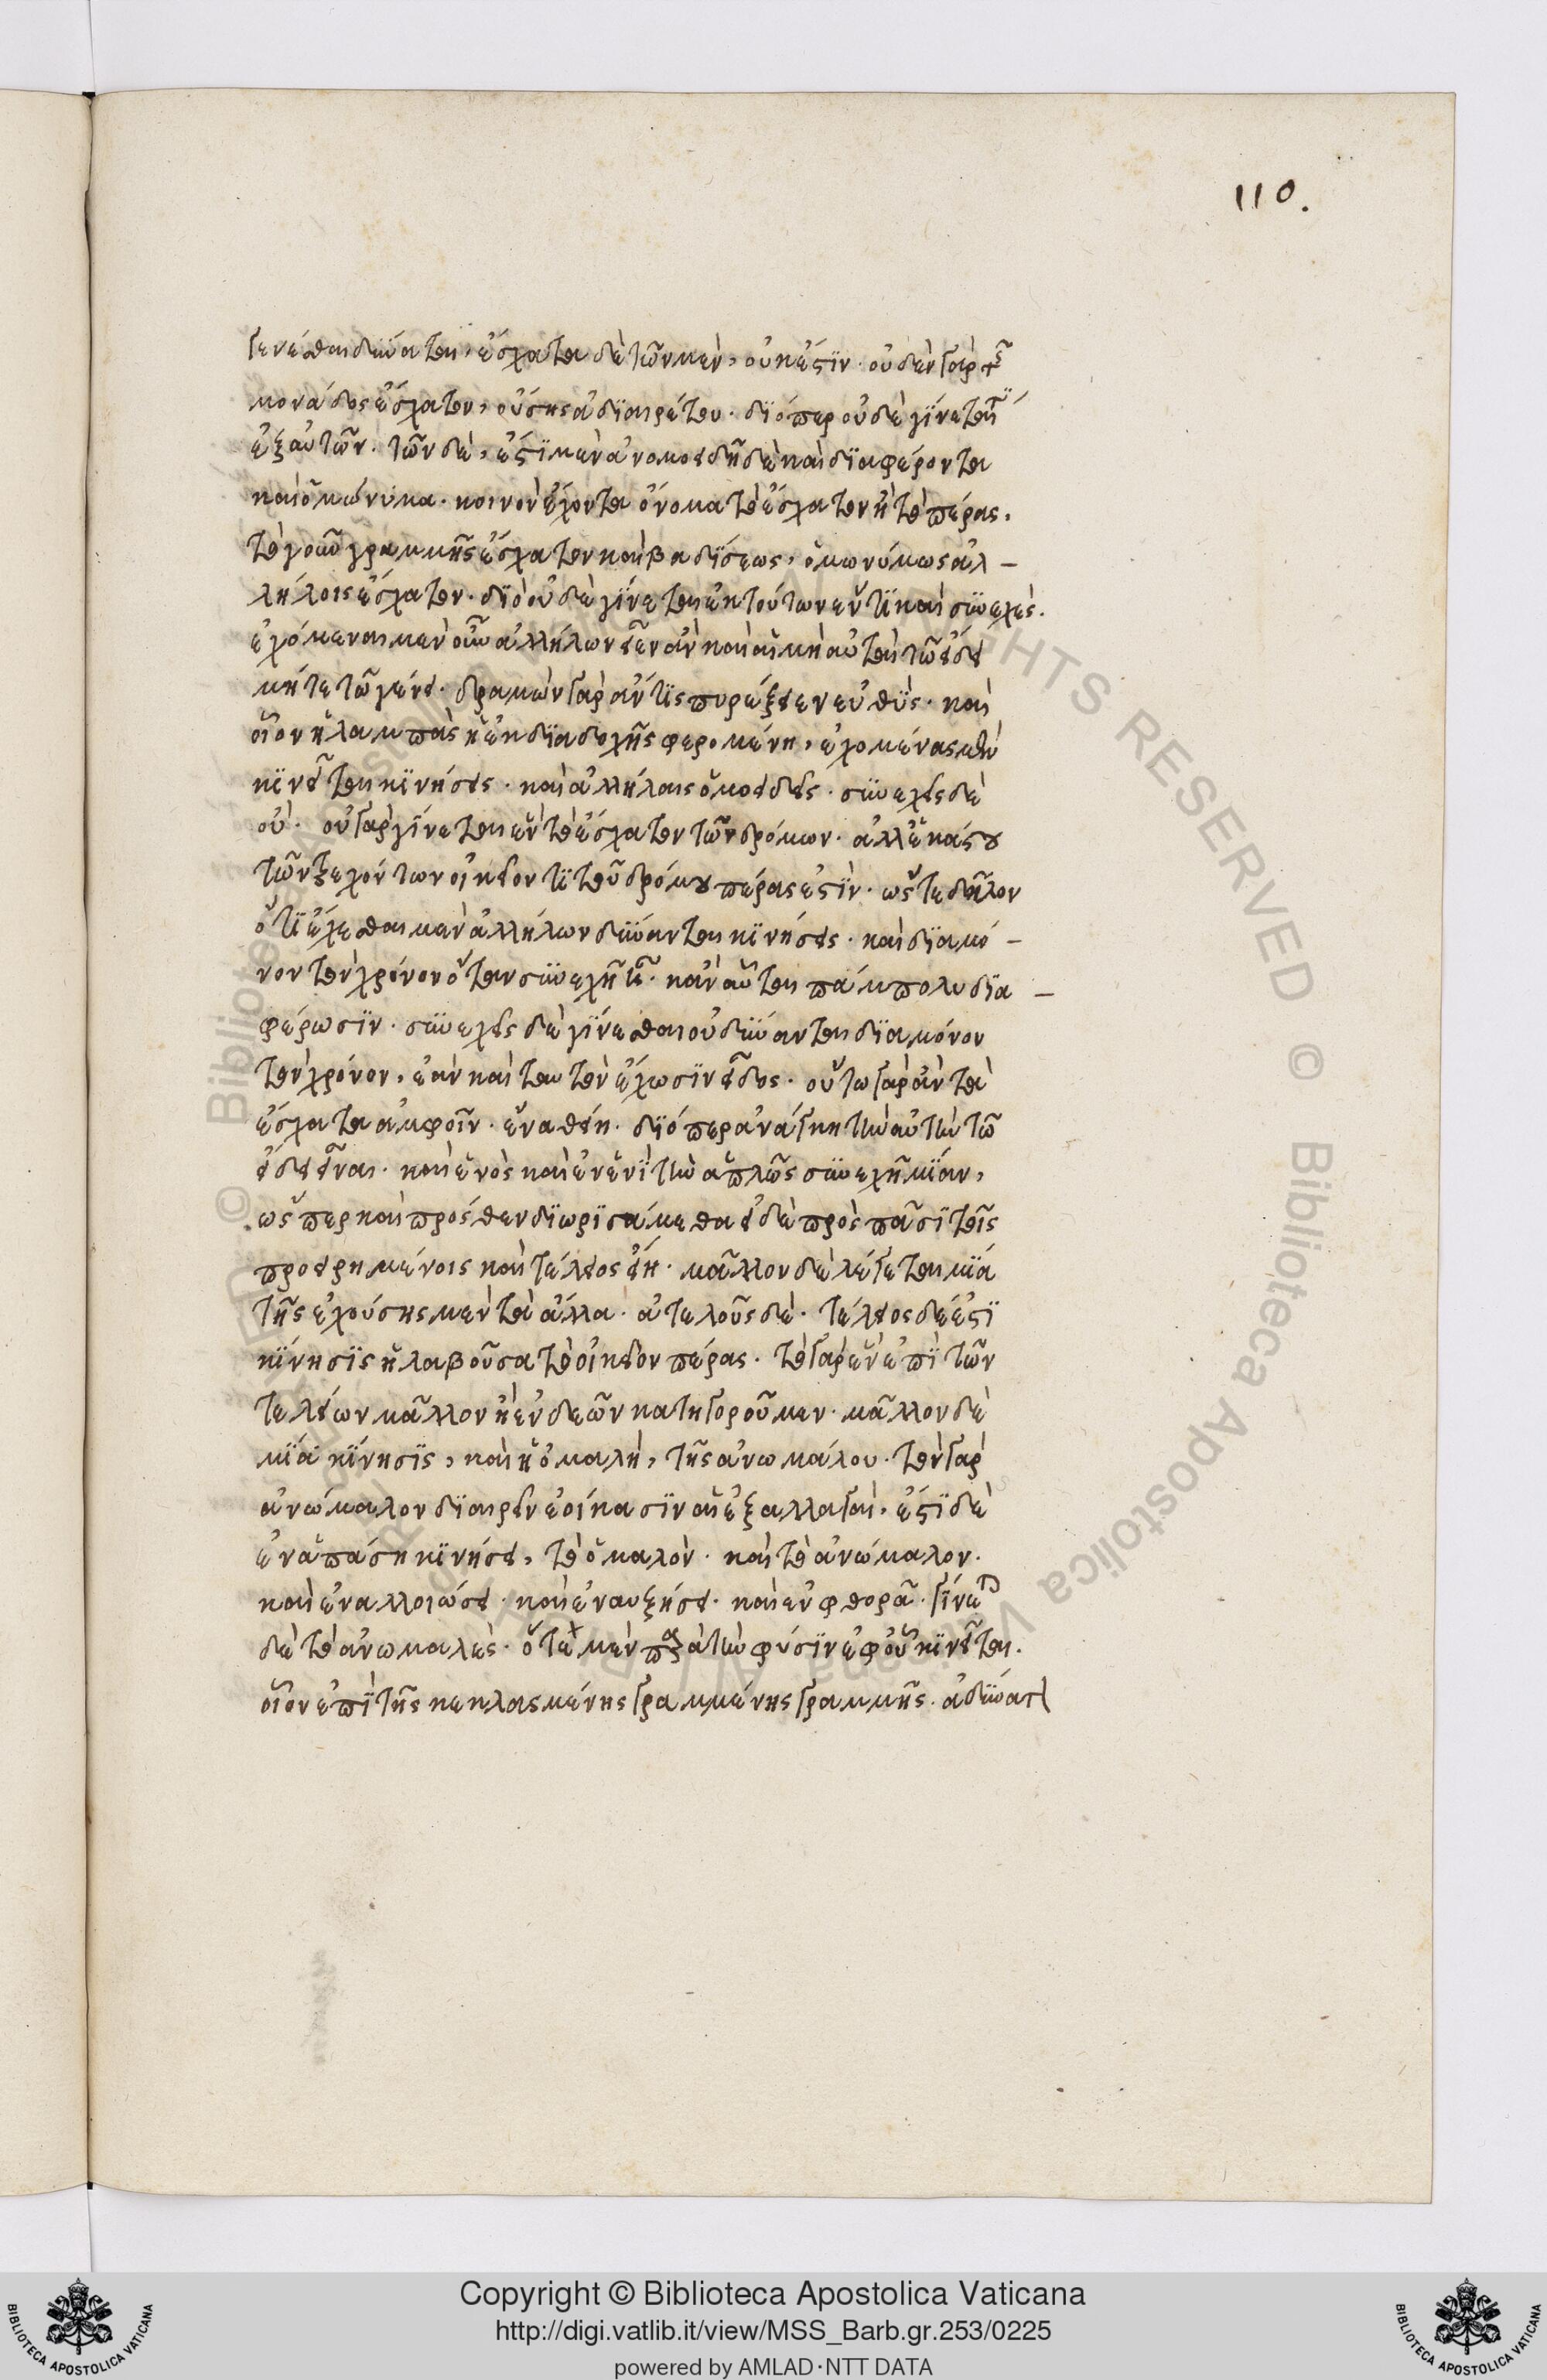 110.
γενέσθαι δύναται, ἔσχατα δὲ τῶν μὲν, οὐκ ἔστϊν· οὐδὲν γὰρ τῆς
μονάδος ἔσχατον, οὔσης ἀδϊαιρέτου· δϊόπερ οὐδὲ γίνεταί τι
ἐξ αὐτῶν· τῶν δὲ, ἔστϊ μὲν ἀνομοειδῆ δὲ καὶ δϊαφέροντα
καὶ ὁμώνυμα· κοινὸν ἔχοντα ὄνομα τὸ ἔσχατον ἢ τὸ πέρας,
τὸ γοῦν γραμμῆς ἔσχατον καὶ βαδΐσεως, ὁμωνύμως ἀλ–
λήλοις ἔσχατον· δϊὸ οὐδὲ γίνεται ἐκ τούτων ἕν τϊ καὶ συνεχές.
ἐχόμεναι μὲν οὖν ἀλλήλων εἶεν ἂν καὶ αἱ μὴ αὐταὶ τῶ εἴδει
μήτε τῶ γένει· δραμὼν γὰρ ἄν τϊς πυρέξειεν εὐθὺς· καὶ
οἷον ἡ λαμπὰς ἡ ἐκ δϊαδοχῆς φερομένη, ἐχομένας μὲν
κϊνεῖται κϊνήσεις· καὶ ἀλλήλαις ὁμοειδεῖς· συνεχεῖς δὲ
οὔ· οὐ γὰρ γίνεται ἓν τὸ ἔσχατον τῶν δρόμων· ἀλλ' ἑκάστου
τῶν τρεχόντων οἰκεῖόν τϊ τοῦ δρόμου πέρας ἐστΐν· ὥστε δῆλον
ὅτϊ ἔχεσθαι μὲν ἀλλήλων δύνανται κϊνήσεις· καὶ δϊὰ μό–
νον τὸν χρόνον ὅταν συνεχὴς ᾖ· κἂν αὗται πάμπολυ δϊα–
φέρωσϊν· συνεχεῖς δὲ γίνεσθαι οὐ δύνανται δϊὰ μόνον
τὸν χρόνον, ἐὰν καὶ ταυτὸν ἔχωσϊν εἶδος· οὕτω γὰρ ἂν τὰ
ἔσχατα ἀμφοῖν· ἓν ἀθείη· δϊόπερ ἀνάγκη τὴν αὐτὴν τῶ
εἴδει εἶναι· καὶ ἑνὸς καὶ ἐν ἑνὶ τὴν ἁπλῶς συνεχῆ μΐαν,
ὥσπερ καὶ πρόσθεν δϊωρϊσάμεθα εἰ δὲ πρὸς πᾶσϊ τοῖς
προειρημένοις καὶ τέλειος εἴη· μᾶλλον δὲ λέγεται μΐα
τῆς ἐχούσης μὲν τὰ ἄλλα· ἀτελοῦς δὲ· τέλειος δέ ἐστϊ
κΐνησϊς ἡ λαβοῦσα τὸ οἰκεῖον πέρας· τὸ γὰρ ἓν ἐπὶ τῶν
τελείων μᾶλλον ἢ ἐνδεῶν κατηγοροῦμεν· μᾶλλον δὲ
μΐα κΐνησϊς, καὶ ἡ ὁμαλὴ, τῆς ἀνωμάλου· τὸν γὰρ
ἀνώμαλον δϊαιρεῖν ἐοίκασϊν αἱ ἐξαλλαγαὶ, ἔστϊ δὲ
ἐν ἁπάσῃ κϊνήσει, τὸ ὁμαλὸν· καὶ τὸ ἀνώμαλον·
καὶ ἐν ἀλλοιώσει· καὶ ἐν αὐξήσει· καὶ ἐν φθορᾶ· γΐνεται
δὲ τὸ ἀνωμαλὲς· ὁτὲ μὲν παρὰ τὴν φύσϊν ἐφ' οὗ κϊνεῖται·
οἷον ἐπὶ τῆς κεκλασμένης γραμμένης γραμμῆς· ἀδύνατον
Copyright © Biblioteca Apostolica Vaticana
http://digi.vatlib.it/view/MSS_Barb.gr.253/0225
powered by AMLAD·NTT DATA